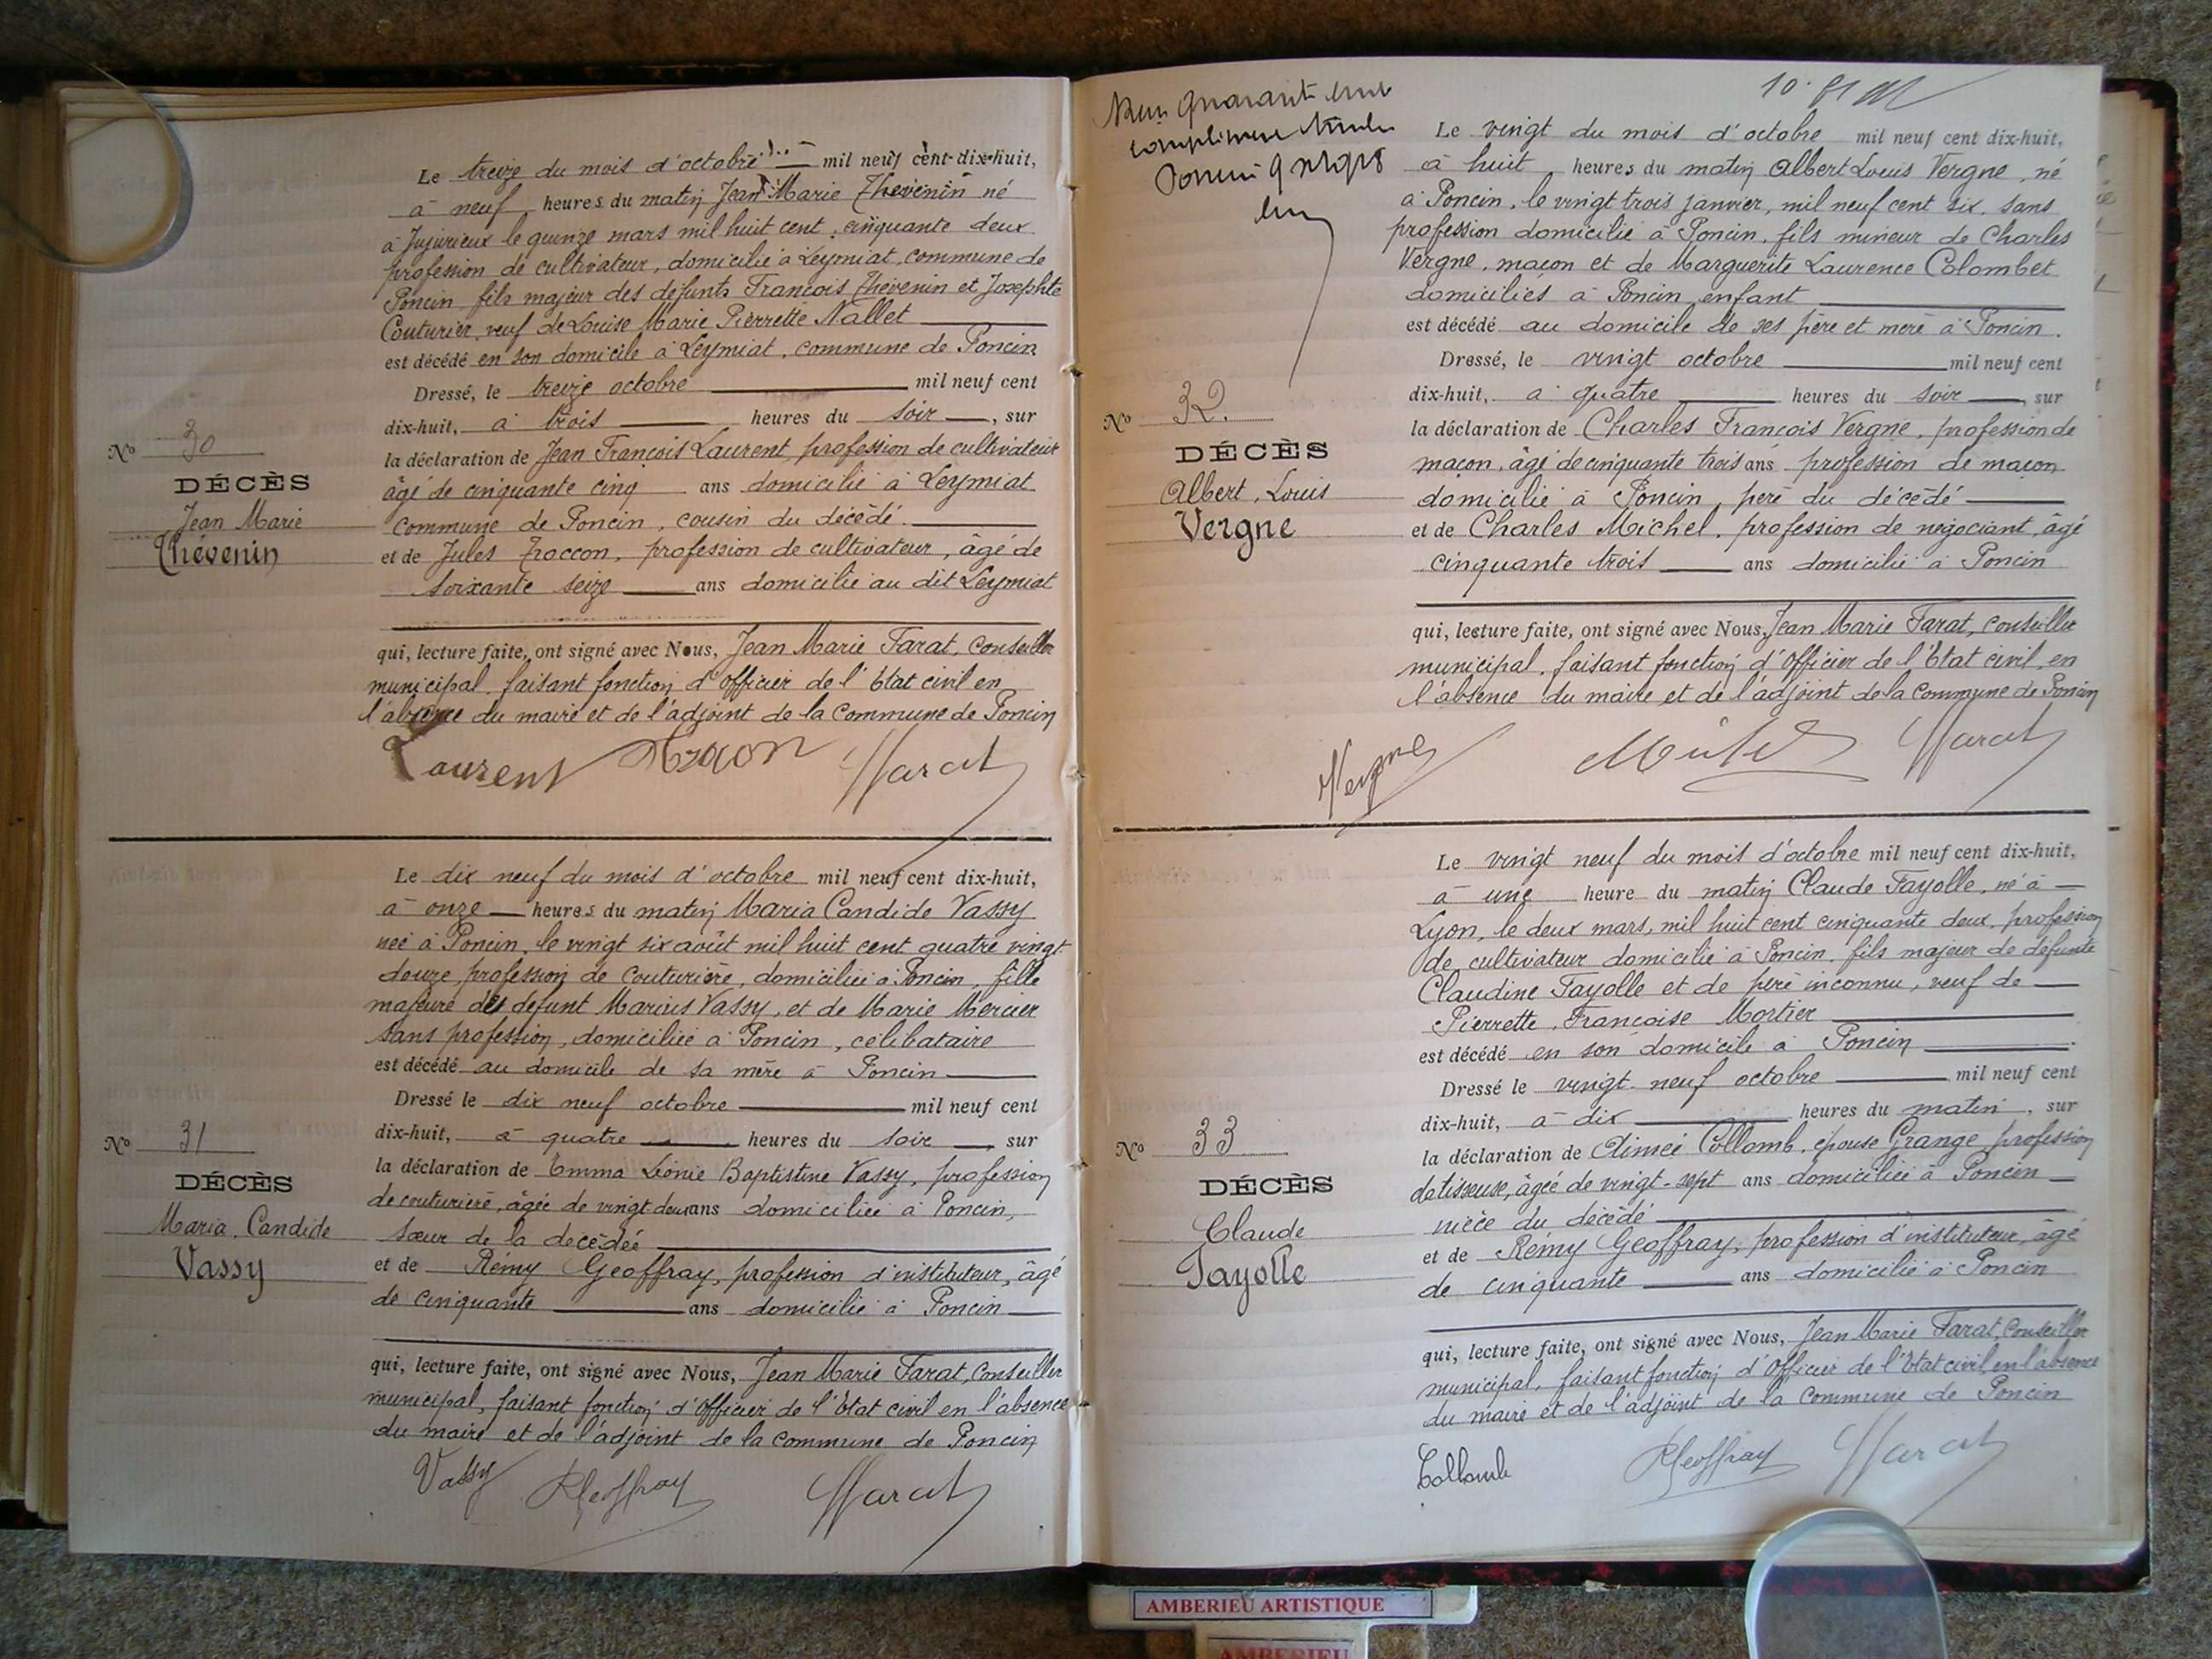 Le treize du mois d'octobre mil neuf cent dix-huit,
à neuf heures du matin Jean Marie Thévenin né
à Jujurieux le quinze mars mil huit cent cinquante deux
profession de cultivateur, domicilié à Leymiat, commune de
Poncin, fils majeur des défunts François Thévenin et Josephte
Couturier, veuf de Louise Marie Pierrette Nallet
est décédé en son domicile à Leymiat, commune de Poncin
Dressé, le treize octobre mil neuf cent
dix-huit, à trois heures du soir, sur
la déclaration de Jean François Laurent profession de cultivateur
âgé de cinquante cinq ans domicilié à Leymiat
commune de Poncin, cousin du décédé.
et de Jules Troccon, profession de cultivateur, âgé de
soixante seize ans domicilié au dit Leymiat
qui, lecture faite, ont signé avec Nous, Jean Marie Farat, Conseiller
municipal, faisant fonction d'officier de l'Etat civil en
l'absence du maire et de l'adjoint de la Commune de Poncin
No 30
DÉCÈS
Jean Marie
Thévenin
Laurent Farat
Le dix neuf du mois d'octobre mil neuf cent dix-huit,
à onze heures du matin Maria Candide Vassy
née à Poncin, le vingt six août mil huit cent quatre vingt
douze, profession de couturière, domiciliée à Poncin, fille
majeure des défunt Marius Vassy, et de Marie Mercier
sans profession, domiciliée à Poncin, célibataire
est décédé au domicile de sa mère à Poncin
Dressé le dix neuf octobre mil neuf cent
dix-huit, à quatre heures du soir, sur
la déclaration de Emma Léonie Baptistine Vassy, profession
de couturière, âgée de vingt deux ans domiciliée à Poncin,
sœur de la décédée
et de Rémy Geoffray, profession d'instituteur, âgé
de cinquante ans domicilié à Poncin
qui, lecture faite, ont signé avec Nous, Jean Marie Farat, Conseiller
municipal, faisant fonction d'officier de l'Etat civil en l'absence
du maire et de l'adjoint de la commune de Poncin
No 31
DÉCÈS
Maria, Candide
Vassy
Vassy RGeoffray Farat
Le vingt du mois d'octobre mil neuf cent dix-huit,
à huit heures du matin Albert Louis Vergne, né
à Poncin, le vingt trois janvier, mil neuf cent six, sans
profession domicilié à Poncin, fils mineur de Charles
Vergne, maçon et de Marguerite Laurence Colombet
domiciliés à Poncin, enfant
est décédé au domicile de ses père et mère à Poncin.
Dressé, le vingt octobre mil neuf cent
dix-huit, à quatre heures du soir, sur
la déclaration de Charles François Vergne, profession de
maçon, âgé de cinquante trois ans profession de maçon
domicilié à Poncin, père du décédé
et de Charles Michel, profession de négociant, âgé
cinquante trois ans domicilié à Poncin
qui, lecture faite, ont signé avec Nous, Jean Marie Farat, Conseiller
municipal, faisant fonction d'officier de l'Etat civil, en
l'absence du maire et de l'adjoint de la commune de Poncin
No 32.
DÉCÈS
Albert, Louis
Vergne
Vergne Michel Farat
Le vingt neuf du mois d'octobre mil neuf cent dix-huit,
à une heure du matin Claude Fayolle, né à
Lyon, le deux mars, mil huit cent cinquante deux, profession
de cultivateur domicilié à Poncin, fils majeur de défunte
Claudine Fayolle et de père inconnu, veuf de
Pierrette, Françoise Mortier
est décédé en son domicile à Poncin
Dressé le vingt-neuf octobre mil neuf cent
dix-huit, à dix heures du matin, sur
la déclaration de Aimée Collomb, épouse Grange profession
de tisseuse, âgée de vingt-sept ans domiciliée à Poncin
nièce du décédé
et de Rémy Geoffray, profession d'instituteur, âgé
de cinquante ans domicilié à Poncin
qui, lecture faite, ont signé avec Nous, Jean Marie Farat, Conseiller
municipal, faisant fonction d'officier de l'Etat civil, en l'absence
du maire et de l'adjoint de la Commune de Poncin
No 33
DÉCÈS
Claude
Fayolle
Collomb RGeoffray Farat
AMBERIEU ARTISTIQUE
AMBERIEU